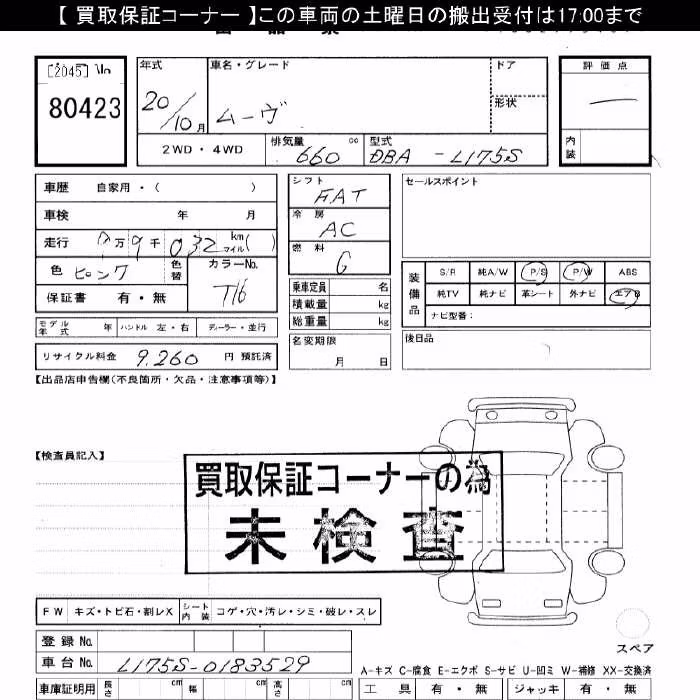 【 買取保証コーナー 】この車両の土曜日の搬出受付は17:00まで
[2045] No
80423
年式 車名・グレード ドア 評価点
20/10月 ムーヴ 形状
2WD・4WD 排気量 660 cc 型式 DBA - L175S 内装
車歴 自家用・( ) シフト FAT セールスポイント
車検 年 月 冷房 AC
走行 万9千032 km マイル ( ) 燃料 G
色 ピンク 色替 カラーNo. T16
保証書 有・無
装備品 S/R 純A/W P/S P/W ABS
純TV 純ナビ 革シート 外ナビ エアB
ナビ型番:
乗車定員 名
積載量 kg
総重量 kg
モデル年式 年 ハンドル 左・右 ディーラー・並行
名変期限 月 日 後日品
リサイクル料金 9,260 円 預託済
【出品店申告欄(不良箇所・欠品・注意事項等)】
【検査員記入】
買取保証コーナーの為
未検査
FW キズ・トビ石・割レX シート内装 コゲ・穴・汚レ・シミ・破レ・スレ
スペア
登録 No.
車台 No. L175S-0183529
A-キズ C-腐食 E-エクボ S-サビ U-凹ミ W-補修 XX-交換済
車庫証明用 長さ cm 幅 cm 高さ cm 工具 有・無 ジャッキ 有・無